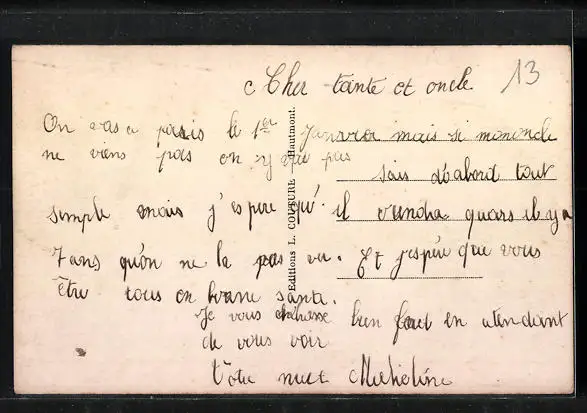 Cher tante et oncle 13
On vas a paris le 1er Janvier mais si mononcle
ne viens pas on y vai pas
sais d'abord tout
simple mais j'espere qu'il viendra quars il y a
7 ans qu'on ne la pas vu. Et j'espère que vous
être tous en bonne santé.
Je vous bien fort en attendant
de vous voir
Votre Micheline
Editions L. COUTURE - Hautmont.